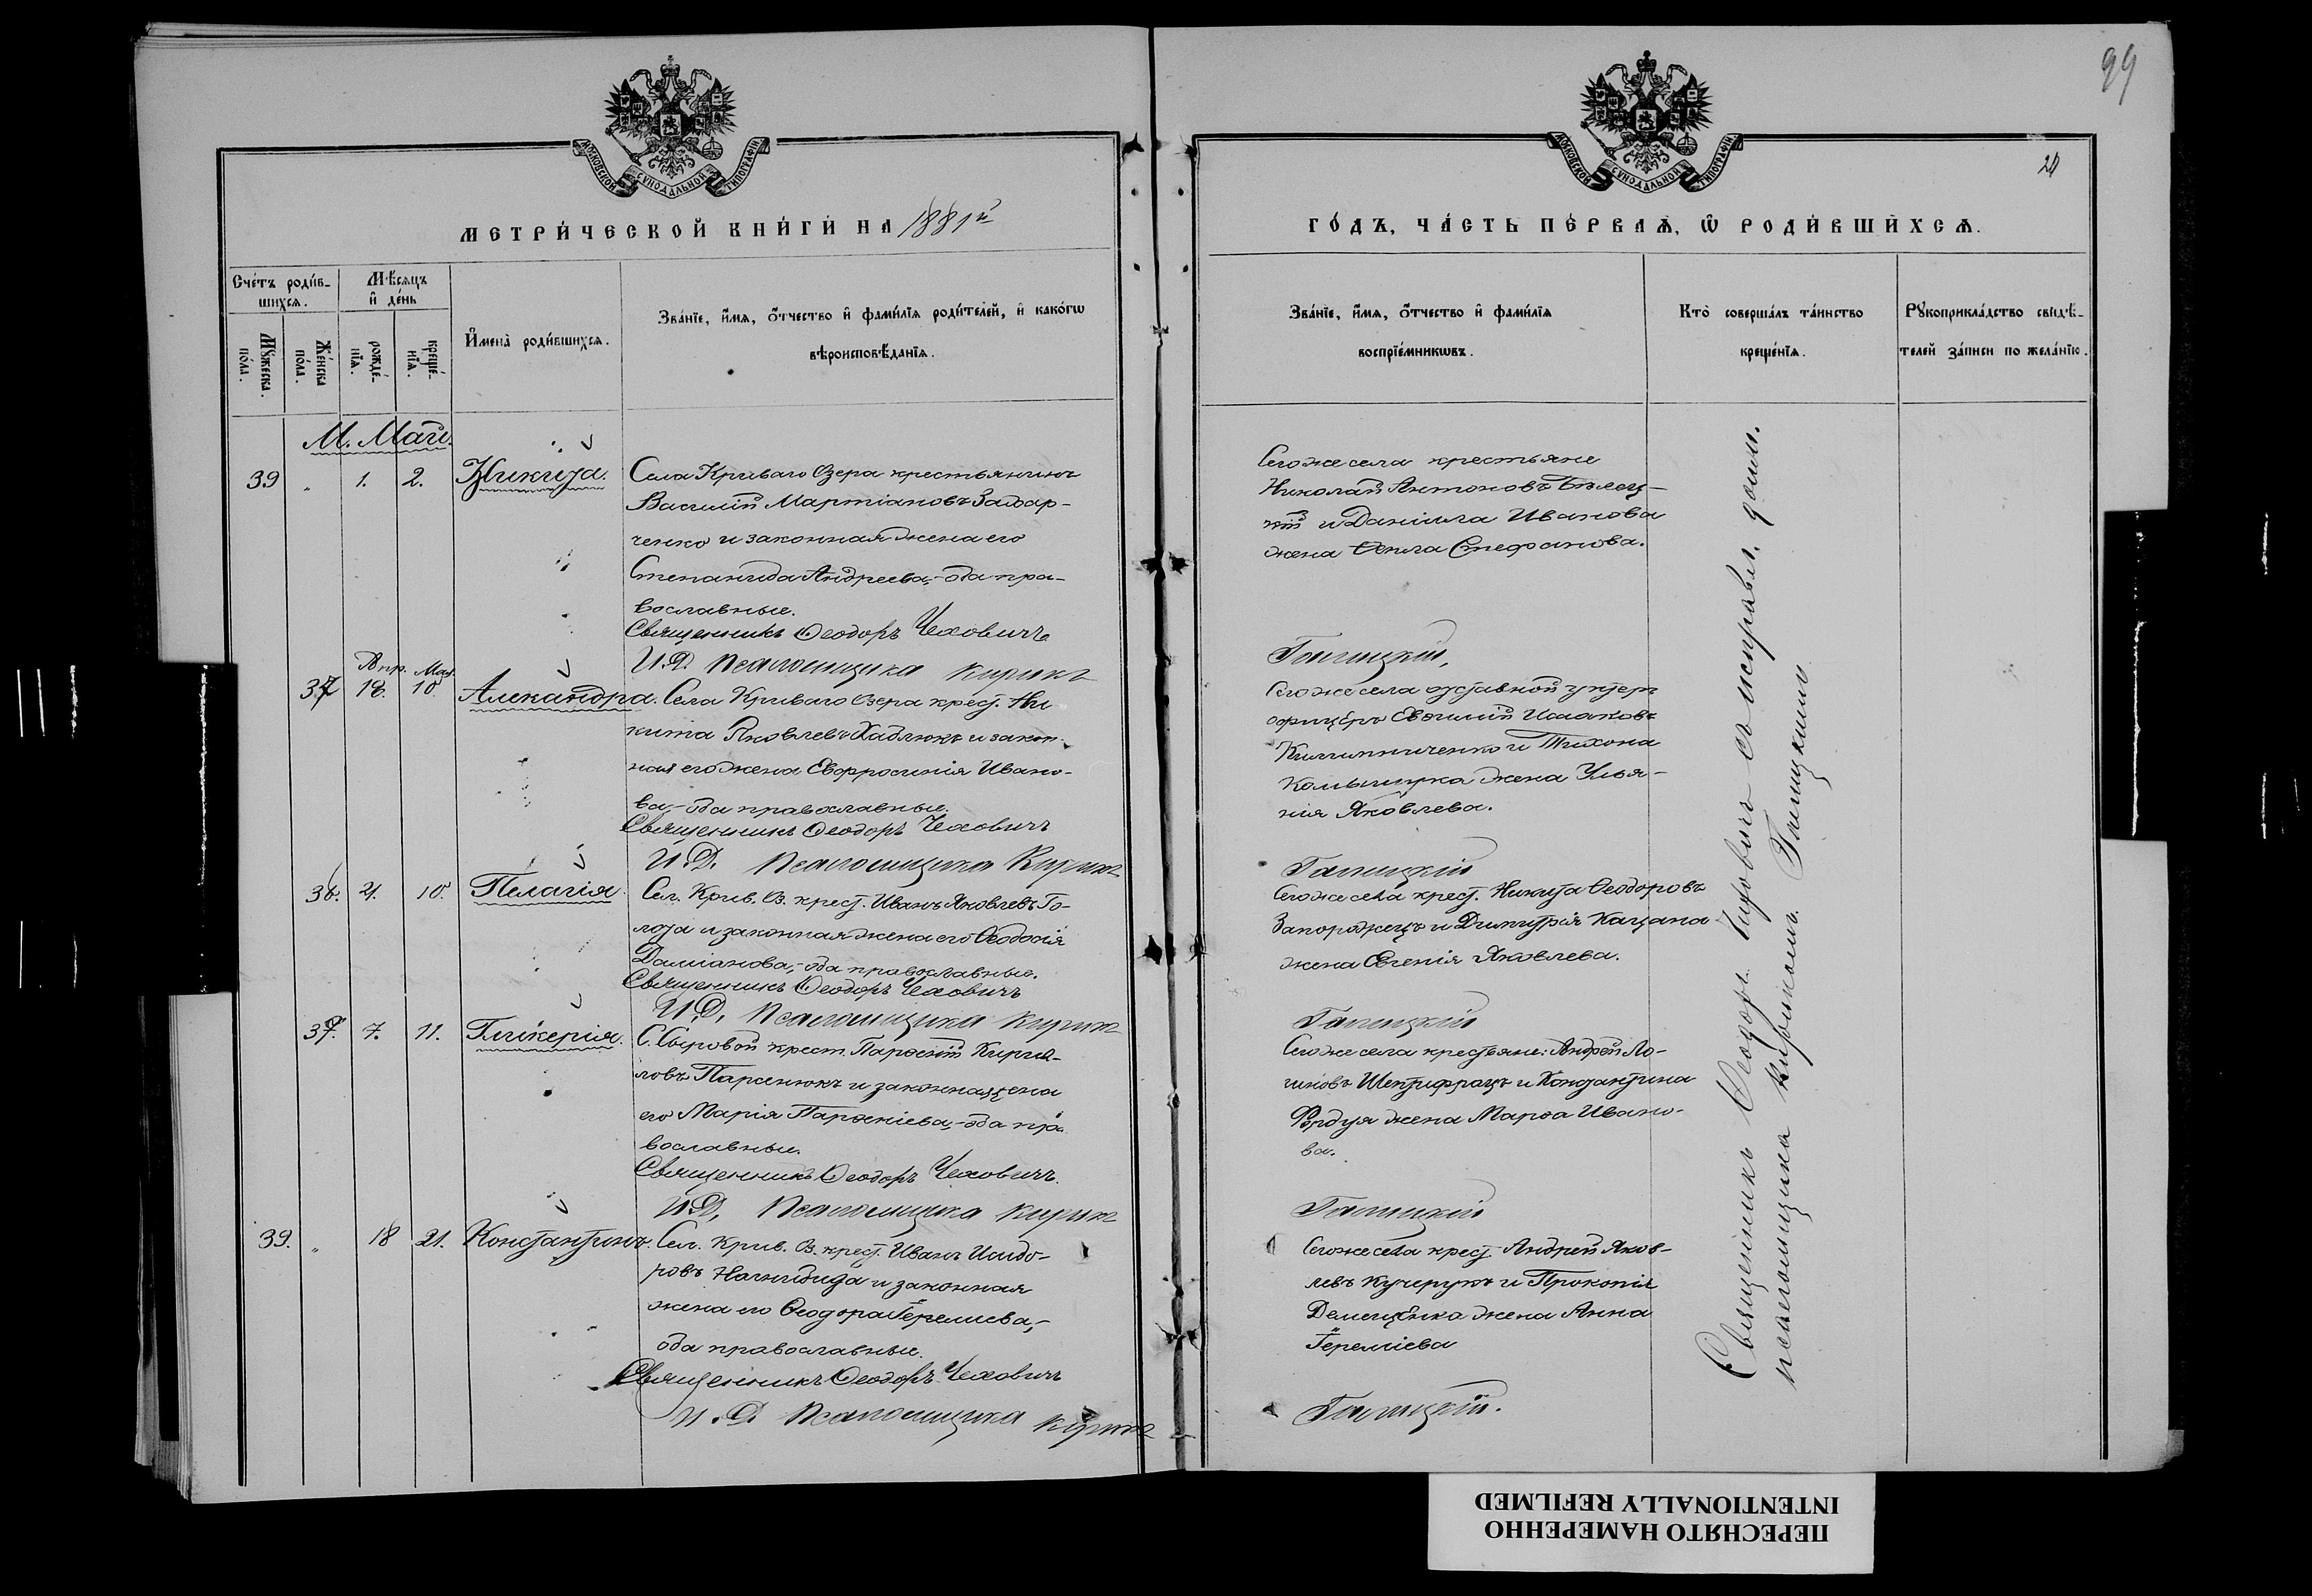 99
МОСКОВСКОЙ СѴНОДАЛЬНОЙ ТИПОГРАФІИ
МОСКОВСКОЙ СѴНОДАЛЬНОЙ ТИПОГРАФІИ
24
МЕТРИ́ЧЕСКОЙ КНИ́ГИ НА 1881й
ГО́ДЪ, ЧА́СТЬ ПЕ́РВАѦ, Ѡ РОДИ́ВШИХСѦ.
Сче́тъ роди́в-
шихсѧ.
Мꙋ́жеска по́ла.
Же́нска по́ла.
Мѣ́сѧцъ
и҆ де́нь
рожде́-
нїѧ.
креще́-
нїѧ.
И҆мена̀ роди́вшихсѧ.
Зва́нїе, и҆́мѧ, ѻ҆́тчество и҆ фами́лїѧ роди́телей, и҆ како́гѡ
вѣроисповѣ́данїѧ.
Зва́нїе, и҆́мѧ, ѻ҆́тчество и҆ фами́лїѧ
воспрїе́мникѡвъ.
Кто̀ соверша́лъ та́инство
креще́нїѧ.
Рꙋкоприкла́дство свидѣ́-
телей за́писи по жела́нїю.
М. Май.
39 „ 1. 2. Никита.
Села Криваго Озера крестьянинъ
Василій Мартіановъ Захар-
ченко и законная жена его
Степанида Андреева,-оба пра-
вославные.
Священникъ Ѳеодоръ Чеховичъ
И.Д. Псаломщика Кирикъ
Сего же села крестьяне
Николай Антоновъ Бѣлец-
кій и Даніила Иванова
жена Ѳекла Стефанова.
Галицкій,
Апр. Мая.
18. 10. Алекандра.
Села Криваго Озера крест. Ни
кита Яковлевъ Хаблюкъ и закон-
ная его жена Евфросинія Ивано-
ва,-оба православные.
Священникъ Ѳеодоръ Чеховичъ
И.Д. Псаломщика Кирикъ
Сего же села отставной унтеръ
офицеръ Евѳимій Исааковъ
и Тихона
жена Улья-
нія Яковлева.
Галицкій
36. 10. Пелагія.
Сел. Крив. Оз. крест. Иванъ Яковлевъ Го-
лота и законная жена его Ѳеодосія
Даміанова,-оба православные.
Священникъ Ѳеодоръ Чеховичъ
И.Д. Псаломщика Кирикъ
Сего же села крест. Никита Ѳеодоровъ
Запорожецъ и Димитрія Кацана
жена Евгенія Яковлева.
Галицкій
37. 7. 11. Гликерія.
С. Сыровой крест. Парѳеній Кирил-
ловъ Парсенюкъ и законная жена
его Марія Парѳеніева,-оба пра
вославные.
Священникъ Ѳеодоръ Чеховичъ.
И.Д. Псаломщика Кирикъ
Сего же села крестьяне: Андрей Ло-
гиновъ и Константина
жена Марѳа Ивано-
ва.
Галицкій
39. „ 18 21. Константинъ.
Сел. Крив. Оз. крест. Иванъ Исидо-
ровъ и законная
жена его Ѳеодора Іереміева,-
оба православные.
Священникъ Ѳеодоръ Чеховичъ
И.Д. Псаломщика Кирикъ
Сего же села крест. Андрей Яков-
левъ Кучерукъ и Прокопія
Деменченка жена Анна
Іереміева
Галицкій.
Священникъ Ѳеодоръ Чеховичъ съ исправл. долж.
псаломщика Кирикомъ Галицкимъ
ПЕРЕСНЯТО НАМЕРЕННО
INTENTIONALLY REFILMED